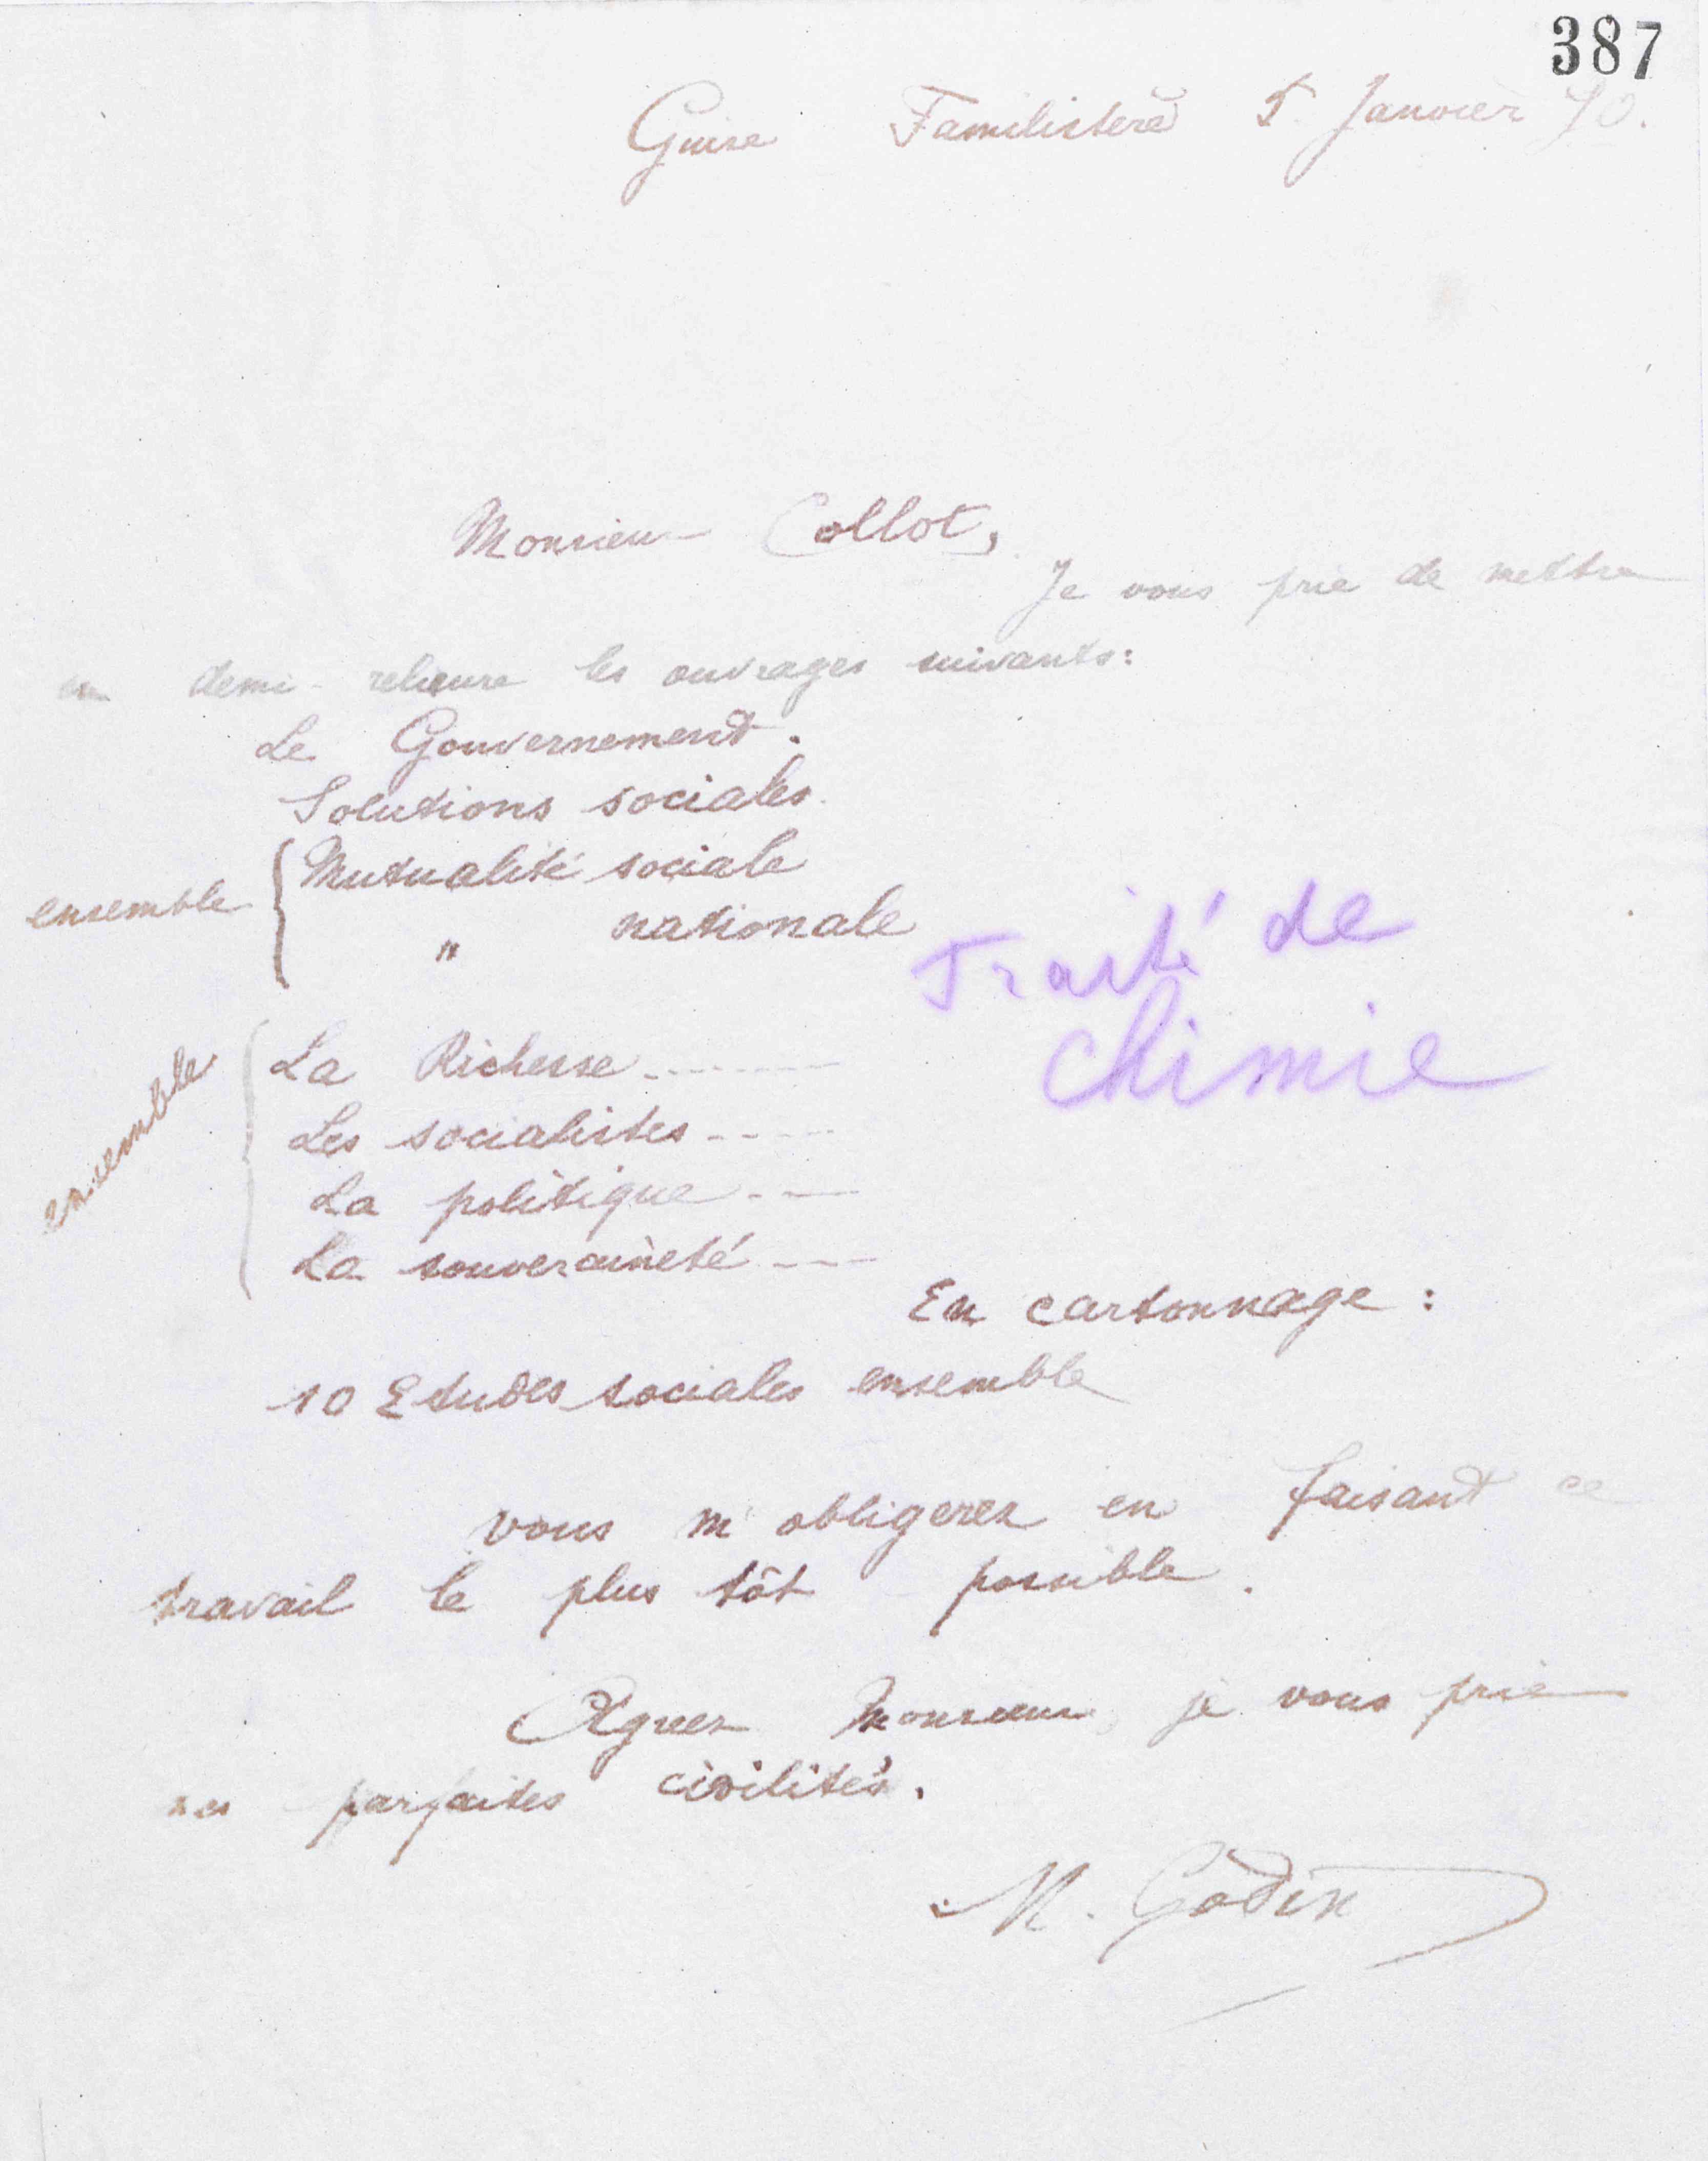 387
Guise Familistère 5 Janvier 90.
Monsieur Collot,
Je vous prie de mettre
en demi-reliure les ouvrages suivants:
Le Gouvernement.
Solutions sociales.
ensemble { Mutualité sociale
" nationale
Traité de
chimie
ensemble { La Richesse -------
Les socialistes -----
La politique ----
La souveraineté ----
En cartonnage :
10 Etudes sociales ensemble
Vous m'obligerez en faisant ce
travail le plus tôt possible.
Agréez Monsieur, je vous prie
mes parfaites civilités.
M. Godin